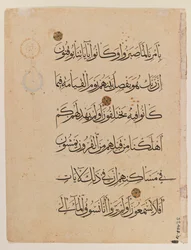 بأمرنا لما صبروا وكانوا بآياتنا يوقنون
إن ربك هو يفصل بينهم يوم القيامة فيما
كانوا فيه يختلفون أولم يهد لهم كم
أهلكنا من قبلهم من القرون يمشون
في مساكنهم إن في ذلك لآيات
أفلا يسمعون أولم يروا أنا نسوق الماء إلى